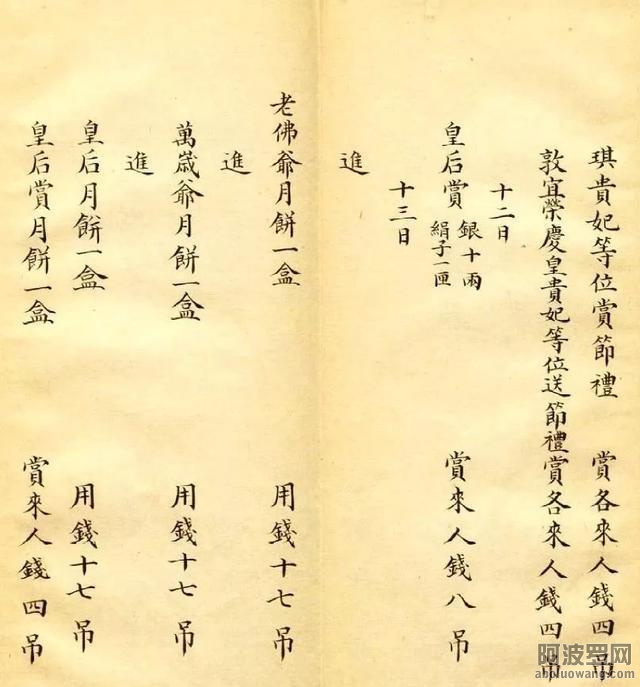 琪貴妃等位賞節禮 賞各來人錢四吊
敦宜榮慶皇貴妃等位送節禮賞各來人錢四吊
十二日
皇后賞 銀十兩 絹子一匣 賞來人錢八吊
十三日
進
老佛爺月餅一盒 用錢十七吊
進
萬歲爺月餅一盒 用錢十七吊
進
皇后月餅一盒 用錢十七吊
皇后賞月餅一盒 賞來人錢四吊
阿波罗网
abpluowang.com